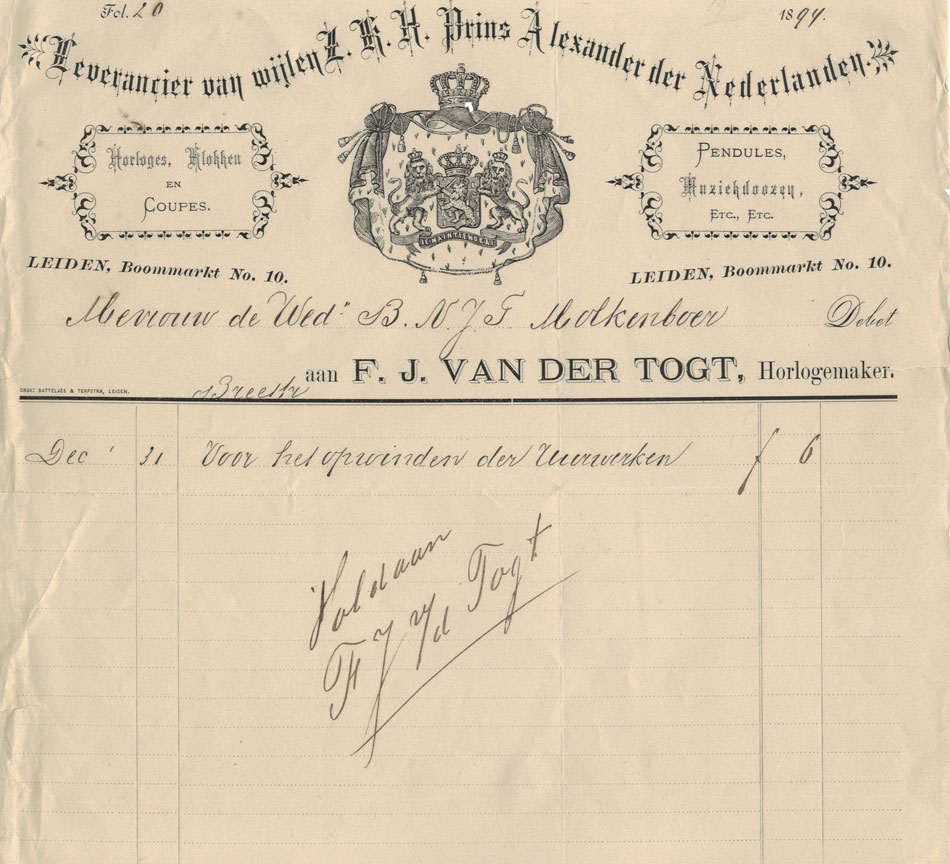 Fol. 20
1894.
Leverancier van wijlen Z. K. H. Prins Alexander der Nederlanden.
Horloges, Klokken
EN
COUPES.
PENDULES,
Muziekdoozen,
ETC., ETC.
JE MAINTIENDRAI
LEIDEN, Boommarkt No. 10.
LEIDEN, Boommarkt No. 10.
Mevrouw de Wedn B. N. J. F. Molkenboer Debet
aan F. J. VAN DER TOGT, Horlogemaker.
DRUK: BATTELJEE & TERPSTRA, LEIDEN.
Breestr
Dec 31 Voor het opwinden der Uurwerken f 6
Voldaan
F J v/d Togt